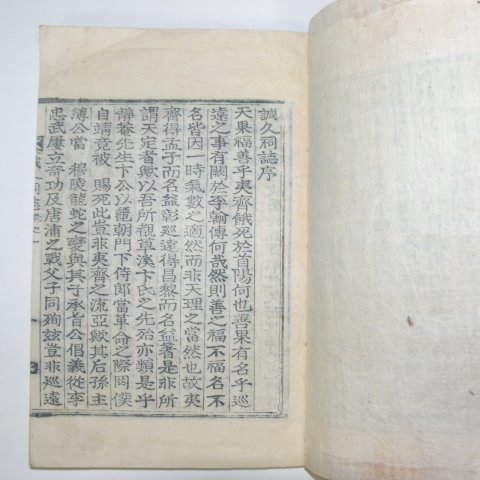 誠久祠誌序
天果福善乎夷齊餓死於首陽何也善果有名乎巡
遠之事有闕於李翰傳何哉然則善之福不福名不
名皆因一時氣數之適然而非天理之當然也故夷
齊得孟子而名益彰巡遠得昌黎而名益著是非所
謂天定者歟以吾所觀草溪卞氏之先殆亦類是乎
靜菴先生卞公以麗朝門下侍郎當革命之際罔僕
自靖竟被 賜死此豈非夷齊之流亞歟其後孫主
簿公當 穆陵龍蛇之變與其子承旨公倡義從李
忠武屢立奇功及唐浦之戰父子同殉玆豈非巡遠